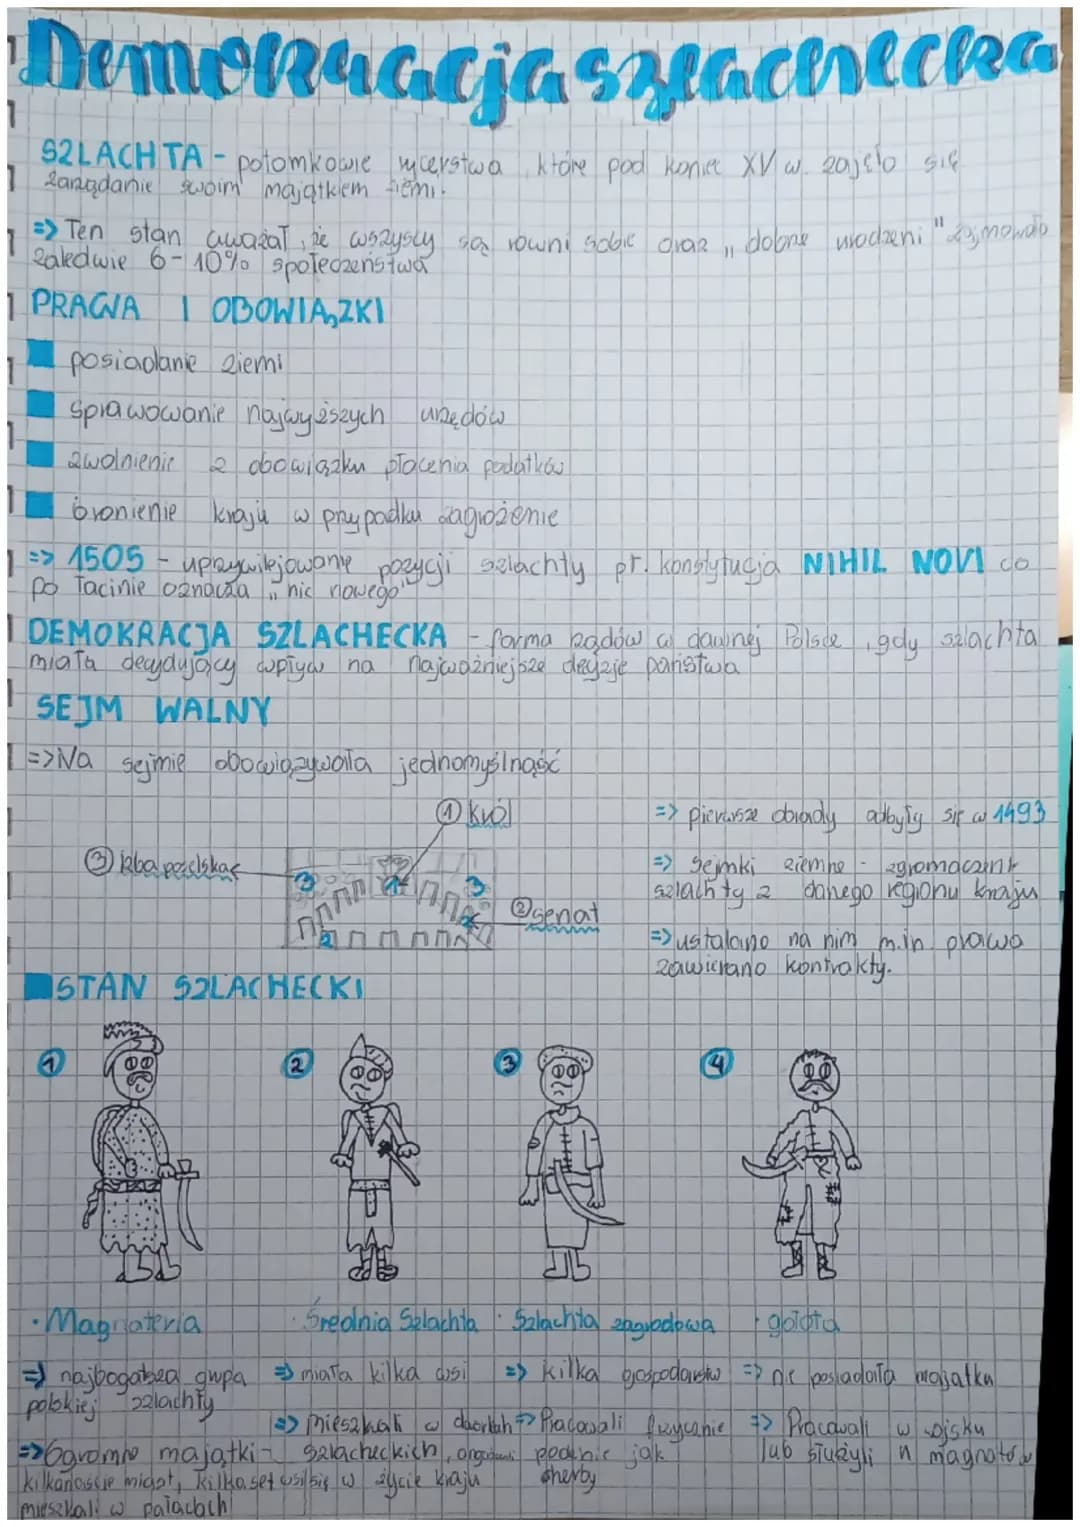 Demokracja szlachecka
SZLACHTA - potomkowie rycerstwa, które pod koniec XV w. zajęło się
zarządanie swoim majątkiem ziemi.
=> Ten stan uważał, że wszyscy są równi sobie oraz „dobrze urodzeni" zajmowało
zaledwie 6-10% społeczeństwa
PRAWA I OBOWIĄZKI
posiadanie ziemi
sprawowanie najwyższych urzędów
zwolnienie z obowiązku płacenia podatków
bronienie kraju w przypadku zagrożenie
=> 1505 - uprzywilejowanie pozycji szlachty pr. konstytucja NIHIL NOVI co
po łacinie oznacza „nic nowego"
DEMOKRACJA SZLACHECKA - forma rządów w dawnej Polsce, gdy szlachta
miała decydujący wpływ na najważniejsze decyzje państwa
SEJM WALNY
=> Na sejmie obowiązywała jednomyślność
① Król
=> pierwsze obrady odbyły się w 1493
③ Izba poselska
3 1 3
=> Sejmki ziemne - zgromadzenie
szlachty z danego regionu kraju
② senat
2 2
=> ustalano na nim m.in. prawa
zawierano kontrakty.
STAN SZLACHECKI
1 2 3 4
• Magnateria • Średnia Szlachta • Szlachta zagrodowa • gołota
=> najbogatsza grupa => miała kilka wsi => kilka gospodarstw => nie posiadała majątku
polskiej szlachty
=> mieszkali w dworkach => Pracowali fizycznie => Pracowali w wojsku
=> Ogromne majątki - szlacheckich, podobnie jak lub służyli u magnatów
kilkanaście miast, kilkaset wsi się w życie kraju
mieszkali w pałacach